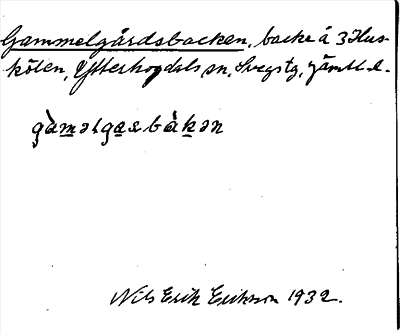 Gammelgårdsbacken, backe å 3 Hus-
kölen, Ytterhogdals sn, Svegs tg, Jämtl. l.
gàmәlgaɐbàkәn
Nils Erik Erikson 1932.